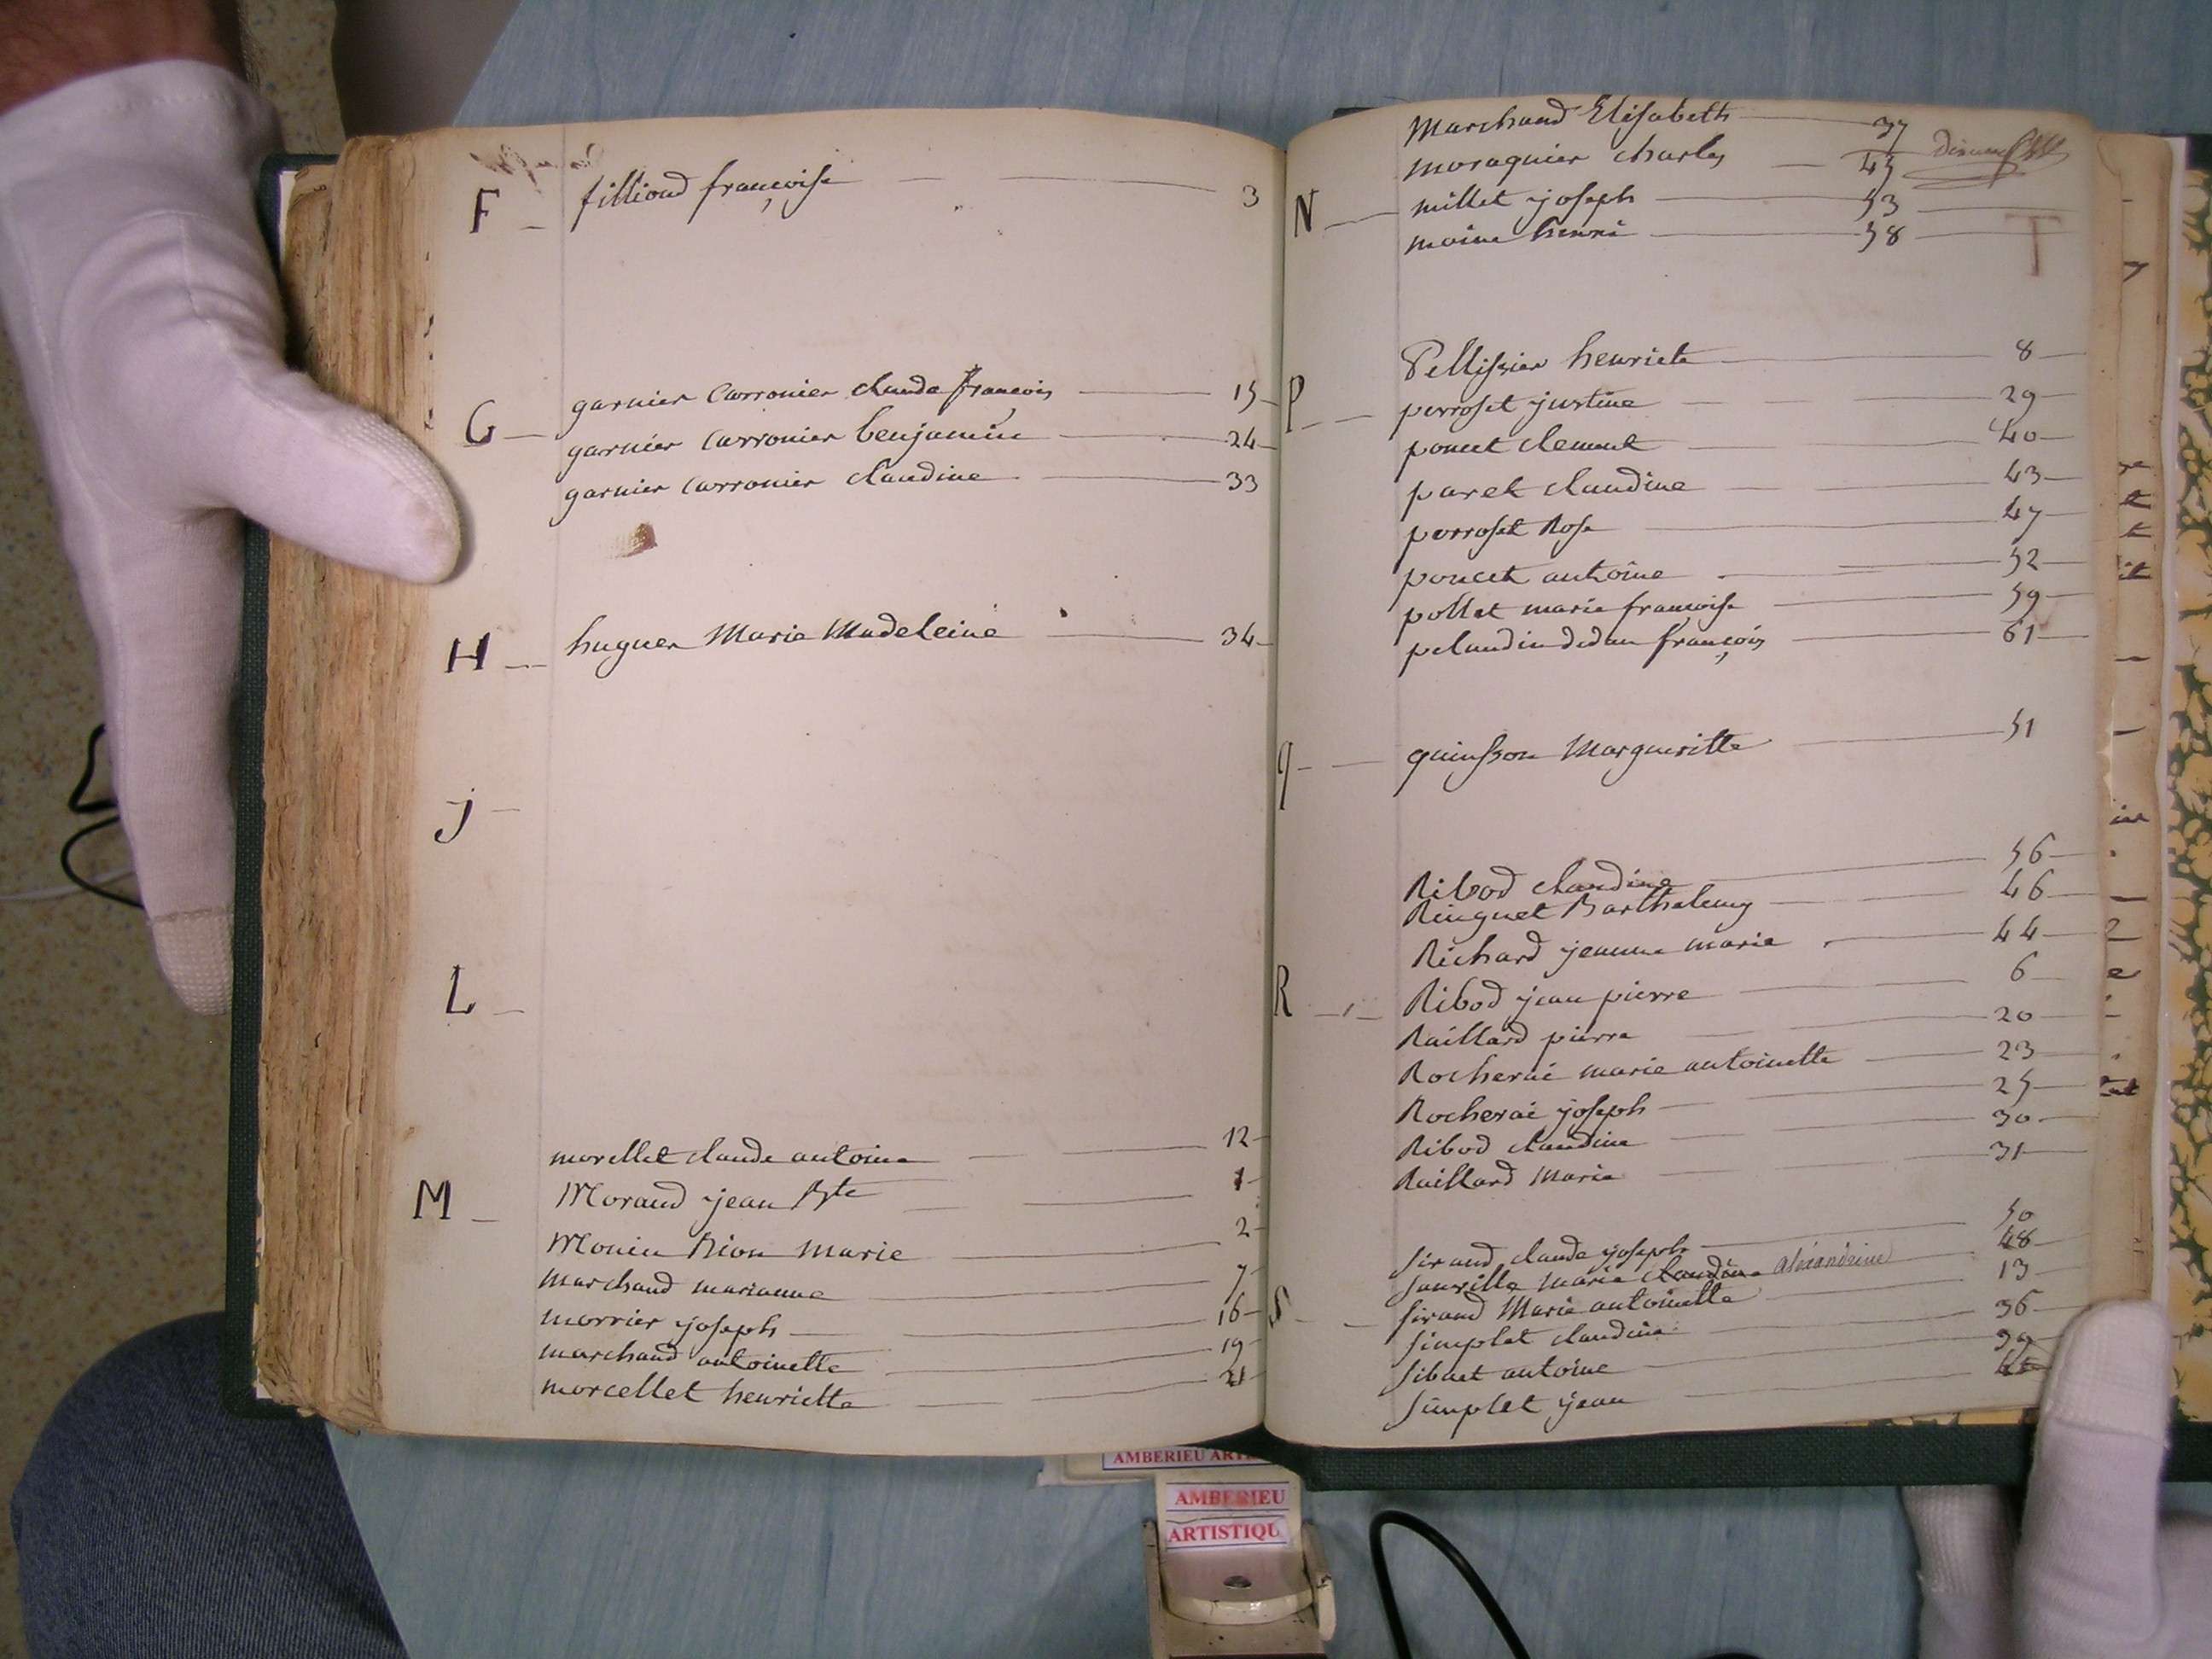 F filliond françoise 3
G garnier Carronier claude françois 15
garnier Carronier benjamin 24
garnier Carronier claudine 33
H huguer Marie Madeleine 34
j
L
morellet claude antoine 12
M Morand jean Bte 1
Monin Bion marie 2
marchand marianne 7
morrier joseph 16
marchand antoinette 19
morcellet henriette 21
Marchand Elisabeth 37
moraquier charles 45
N millet joseph 53
moine henri 58
T
Pellissier henriete 8
P perroset justine 29
poncet clement 40
paret claudine 43
perroset Rose 47
poncet antoine 52
pollet marie françoise 59
pelaudin dedan françois 61
q quinsson Margueritte 51
Ribod claudine 56
Ringuet Barthelemy 46
Richard jeanne marie 44
R Ribod jean pierre 6
Raillard pierre 20
Rocherai marie antoinette 23
Rocherai joseph 25
Ribod claudine 30
Raillard Marie 31
sirand claude joseph 50
marie claudine alexandrine 48
S sirand Marie antoinette 13
simplet claudine 36
sibuet antoine 39
simplet jean
AMBERIEU
AMBERIEU
ARTISTIQU